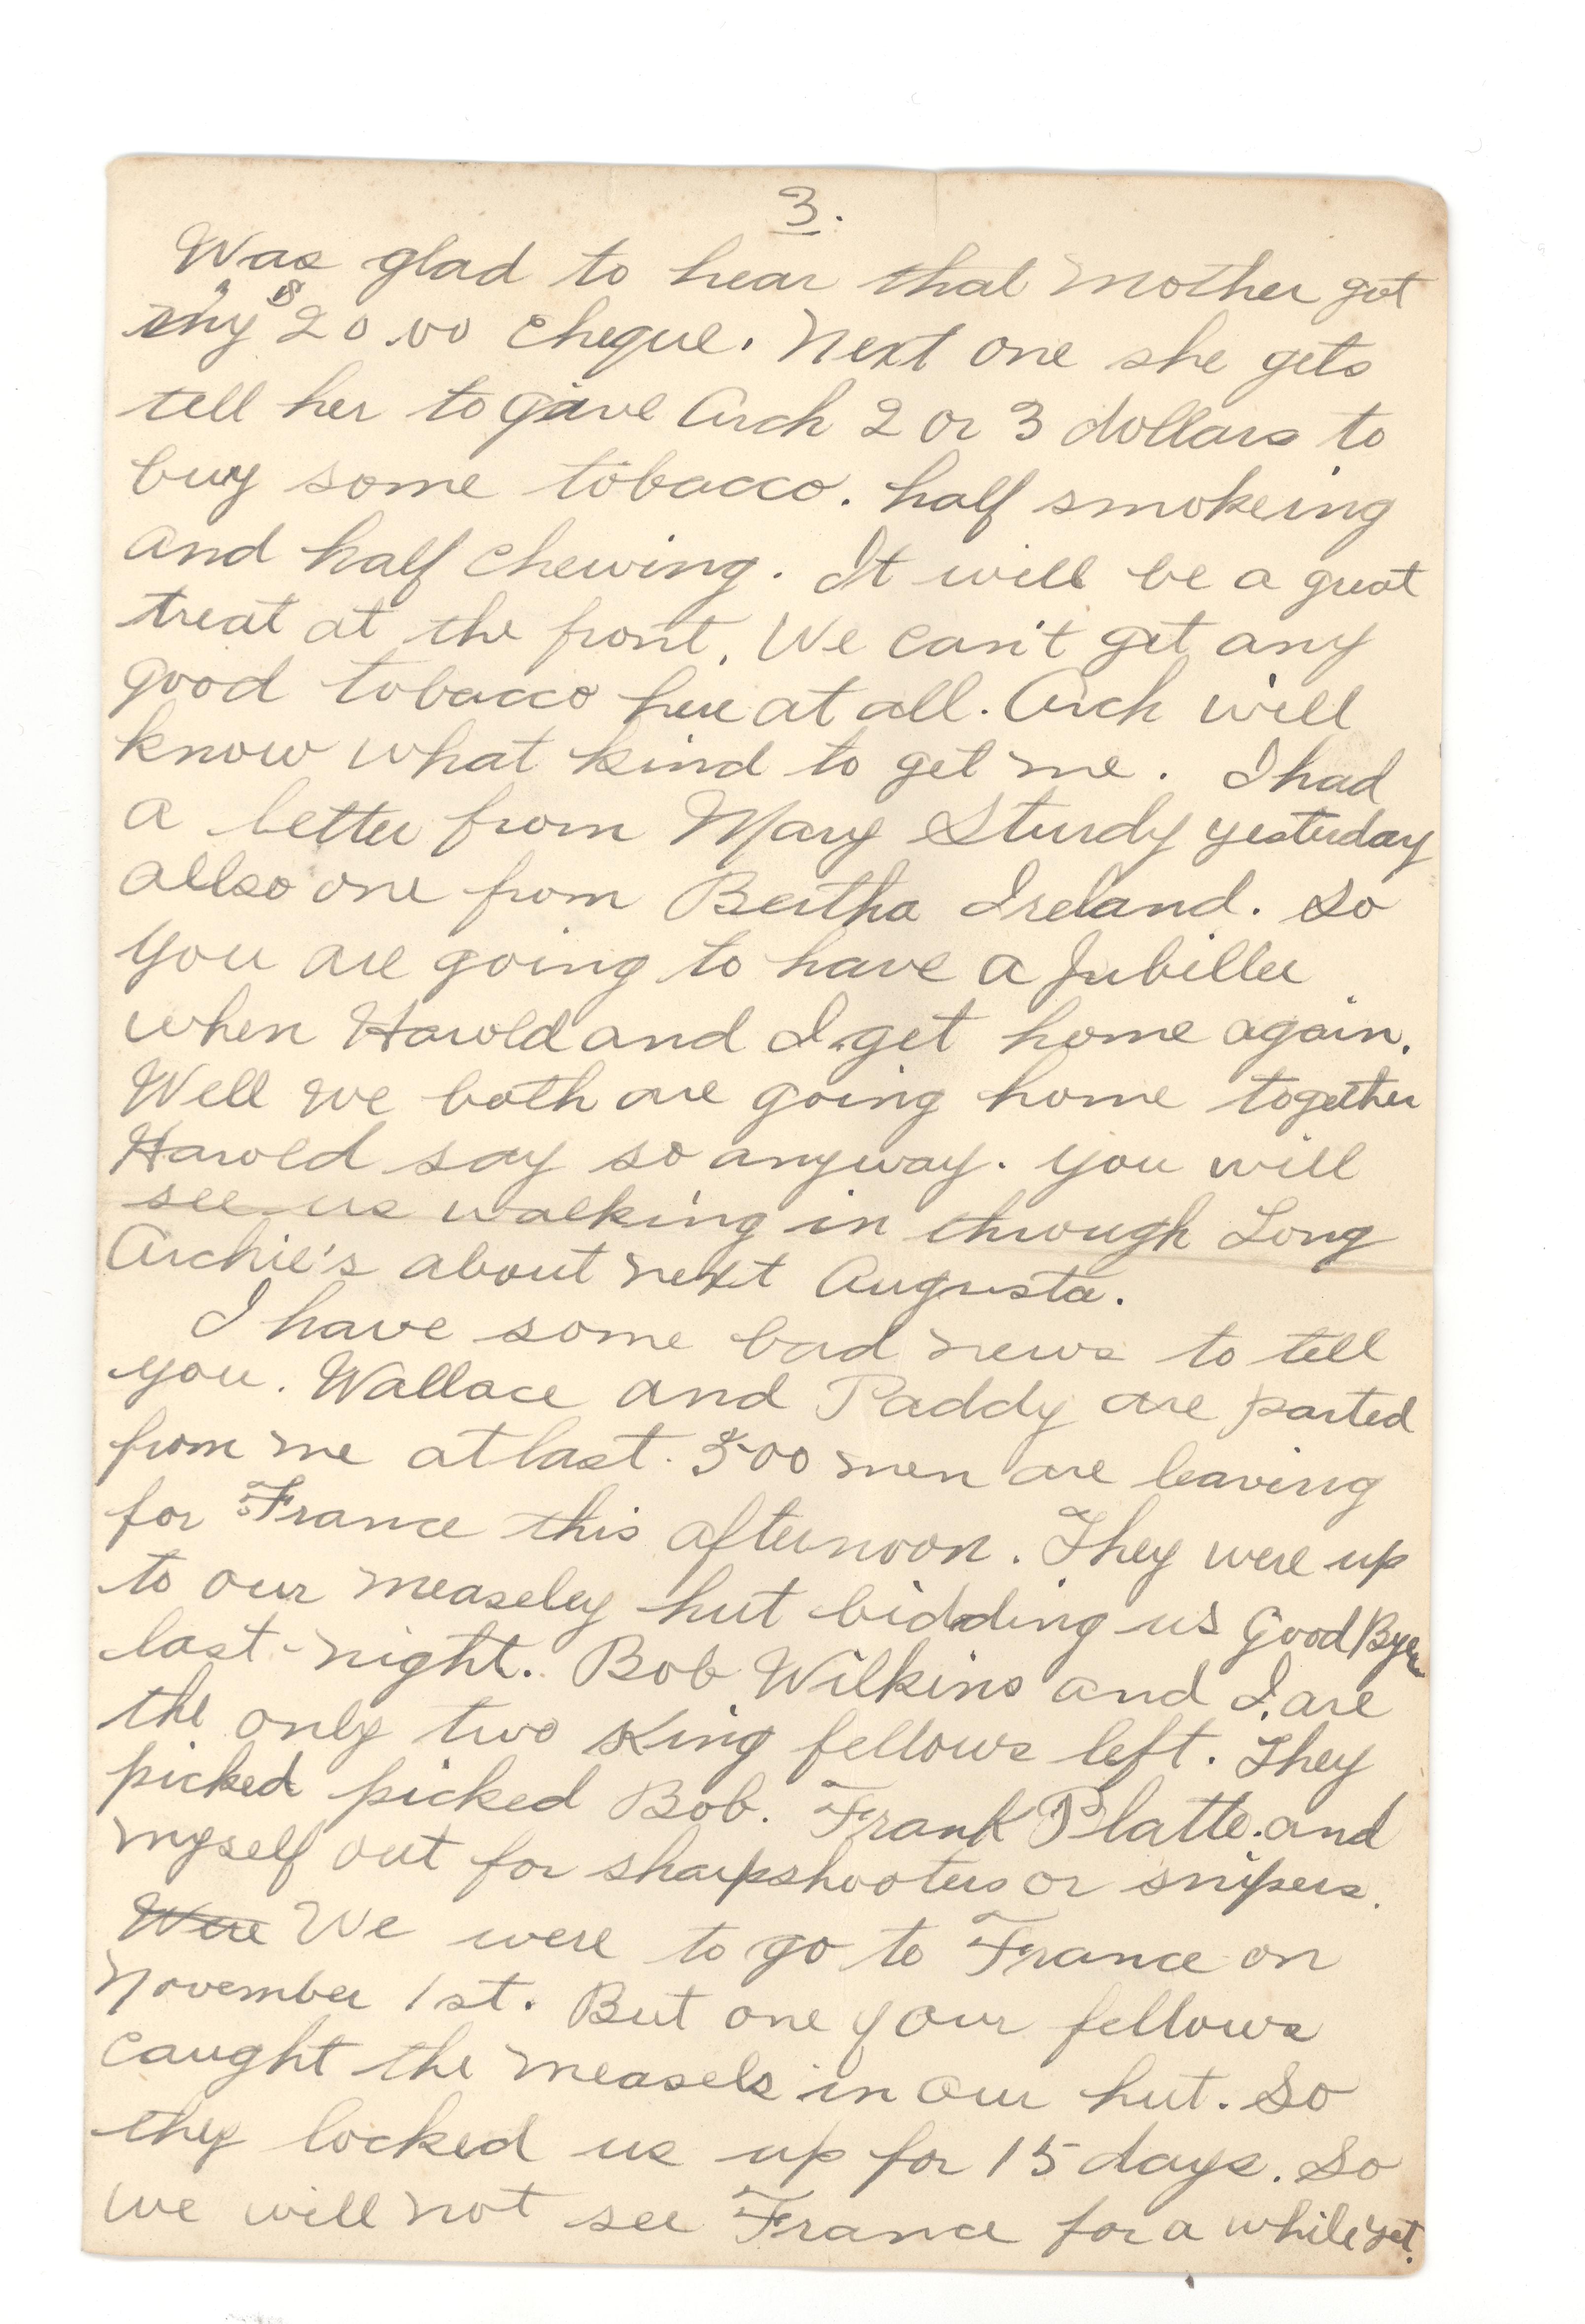 3.
Was glad to hear that Mother got
my $20.00 cheque. Next one she gets
tell her to give Arch 2 or 3 dollars to
buy some tobacco. half smokeing
and half chewing. It will be a great
treat at the front. We can't get any
good tobacco here at all. Arch will
know what kind to get me. I had
a letter from Mary Sturdy yesterday
allso one from Bertha Ireland. So
you are going to have a Jubillee
when Harold and I get home again.
Well we both are going home together
Harold say so anyway. you will
see us walking in through Long
Archie's about next Augusta.
I have some bad news to tell
you. Wallace and Paddy are parted
from me at last. 500 men are leaving
for France this afternoon. They were up
to our measeley hut bidding us Good Bye
last-night. Bob Wilkins and I are
the only two King fellows left. They
picked picked Bob. Frank Platte. and
myself out for sharpshooters or snipers.
Were We were to go to France on
November 1st. But one of our fellows
caught the measels in our hut. So
they locked us up for 15 days. So
we will not see France for a while yet.